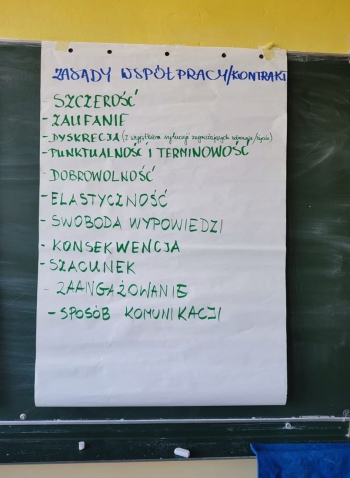 ZASADY WSPÓŁPRACY/KONTRAKT
- SZCZEROŚĆ
- ZAUFANIE
- DYSKRECJA (z wyjątkiem sytuacji zagrażających zdrowiu/życiu)
- PUNKTUALNOŚĆ I TERMINOWOŚĆ
- DOBROWOLNOŚĆ
- ELASTYCZNOŚĆ
- SWOBODA WYPOWIEDZI
- KONSEKWENCJA
- SZACUNEK
- ZAANGAŻOWANIE
- SPOSÓB KOMUNIKACJI